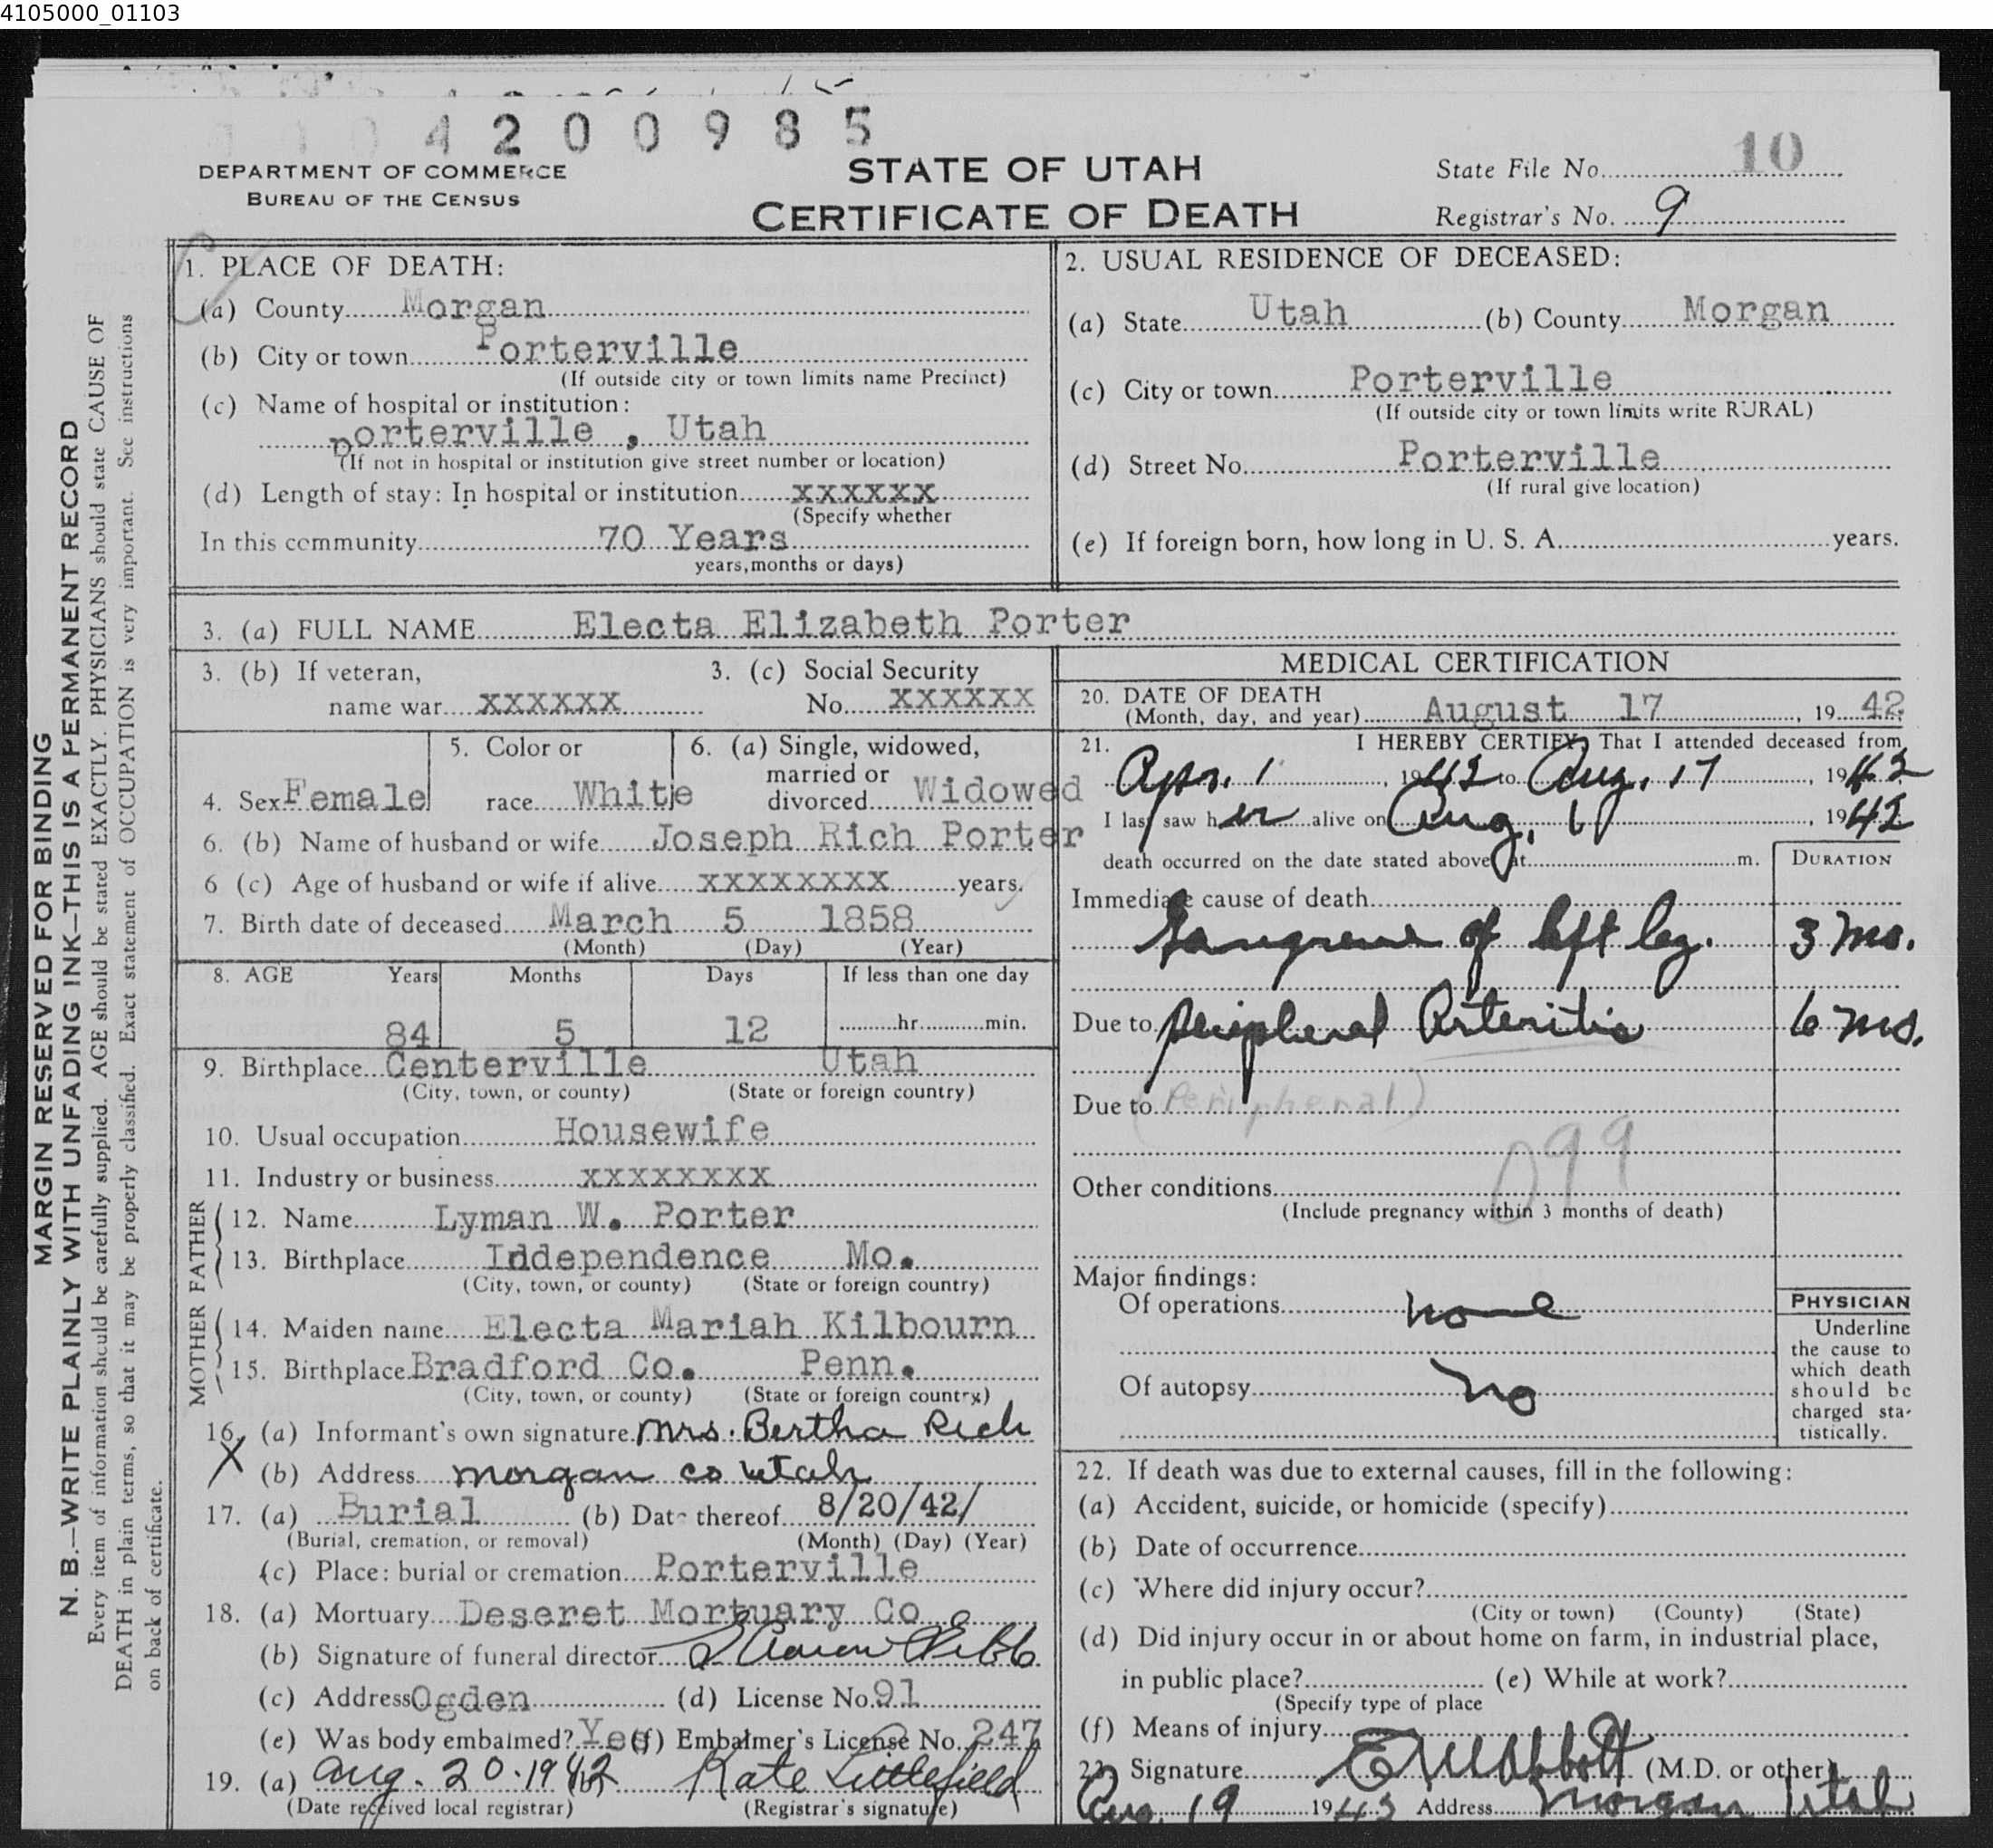 4105000_01103
4 2 0 0 9 8 5
DEPARTMENT OF COMMERCE
BUREAU OF THE CENSUS
STATE OF UTAH
CERTIFICATE OF DEATH
State File No. 10
Registrar's No. 9
MARGIN RESERVED FOR BINDING
N. B.—WRITE PLAINLY WITH UNFADING INK—THIS IS A PERMANENT RECORD
Every item of information should be carefully supplied. AGE should be stated EXACTLY. PHYSICIANS should state CAUSE OF
DEATH in plain terms, so that it may be properly classified. Exact statement of OCCUPATION is very important. See instructions
on back of certificate.
1. PLACE OF DEATH:
(a) County Morgan
(b) City or town Porterville
(If outside city or town limits name Precinct)
(c) Name of hospital or institution:
porterville , Utah
(If not in hospital or institution give street number or location)
(d) Length of stay: In hospital or institution XXXXXX
(Specify whether
In this community 70 Years
years, months or days)
2. USUAL RESIDENCE OF DECEASED:
(a) State Utah (b) County Morgan
(c) City or town Porterville
(If outside city or town limits write RURAL)
(d) Street No. Porterville
(If rural give location)
(e) If foreign born, how long in U. S. A. years.
3. (a) FULL NAME Electa Elizabeth Porter
3. (b) If veteran,
name war XXXXXX
3. (c) Social Security
No. XXXXXX
4. Sex Female
5. Color or
race White
6. (a) Single, widowed,
married or
divorced Widowed
6. (b) Name of husband or wife Joseph Rich Porter
6 (c) Age of husband or wife if alive XXXXXXXX years.
7. Birth date of deceased March 5 1858
(Month) (Day) (Year)
8. AGE Years Months Days If less than one day
84 5 12 hr. min.
9. Birthplace Centerville Utah
(City, town, or county) (State or foreign country)
10. Usual occupation Housewife
11. Industry or business XXXXXXXX
FATHER
12. Name Lyman W. Porter
13. Birthplace Iddependence Mo.
(City, town, or county) (State or foreign country)
MOTHER
14. Maiden name Electa Mariah Kilbourn
15. Birthplace Bradford Co. Penn.
(City, town, or county) (State or foreign country)
16. (a) Informant's own signature Mrs. Bertha Rich
X (b) Address Morgan co Utah
17. (a) Burial (b) Date thereof 8/20/42/
(Burial, cremation, or removal) (Month) (Day) (Year)
(c) Place: burial or cremation Porterville
18. (a) Mortuary Deseret Mortuary Co
(b) Signature of funeral director
(c) Address Ogden (d) License No. 91
(e) Was body embalmed? Yes (f) Embalmer's License No. 247
19. (a) Aug. 20. 1942 (b) Kate Littlefield
(Date received local registrar) (Registrar's signature)
MEDICAL CERTIFICATION
20. DATE OF DEATH
(Month, day, and year) August 17, 19 42
21. I HEREBY CERTIFY, That I attended deceased from
Apr. 1, 1942 to Aug. 17, 1942
I last saw her alive on Aug. 1942
death occurred on the date stated above at m.
DURATION
Immediate cause of death
Gangrene of left leg. 3 mo.
Due to Peripheral Arteritis 6 mo.
Due to (Peripheral)
099
Other conditions
(Include pregnancy within 3 months of death)
Major findings:
Of operations none
Of autopsy no
PHYSICIAN
Underline
the cause to
which death
should be
charged sta-
tistically.
22. If death was due to external causes, fill in the following:
(a) Accident, suicide, or homicide (specify)
(b) Date of occurrence
(c) Where did injury occur?
(City or town) (County) (State)
(d) Did injury occur in or about home on farm, in industrial place,
in public place? (e) While at work?
(Specify type of place
(f) Means of injury
23. Signature Abbott (M.D. or other)
Aug 19 19 Address Morgan Utah